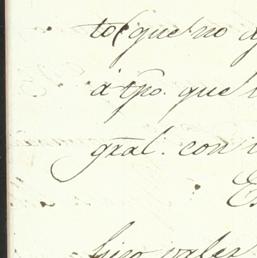 to(que no
á tpo. que
gral. con
hizo valer